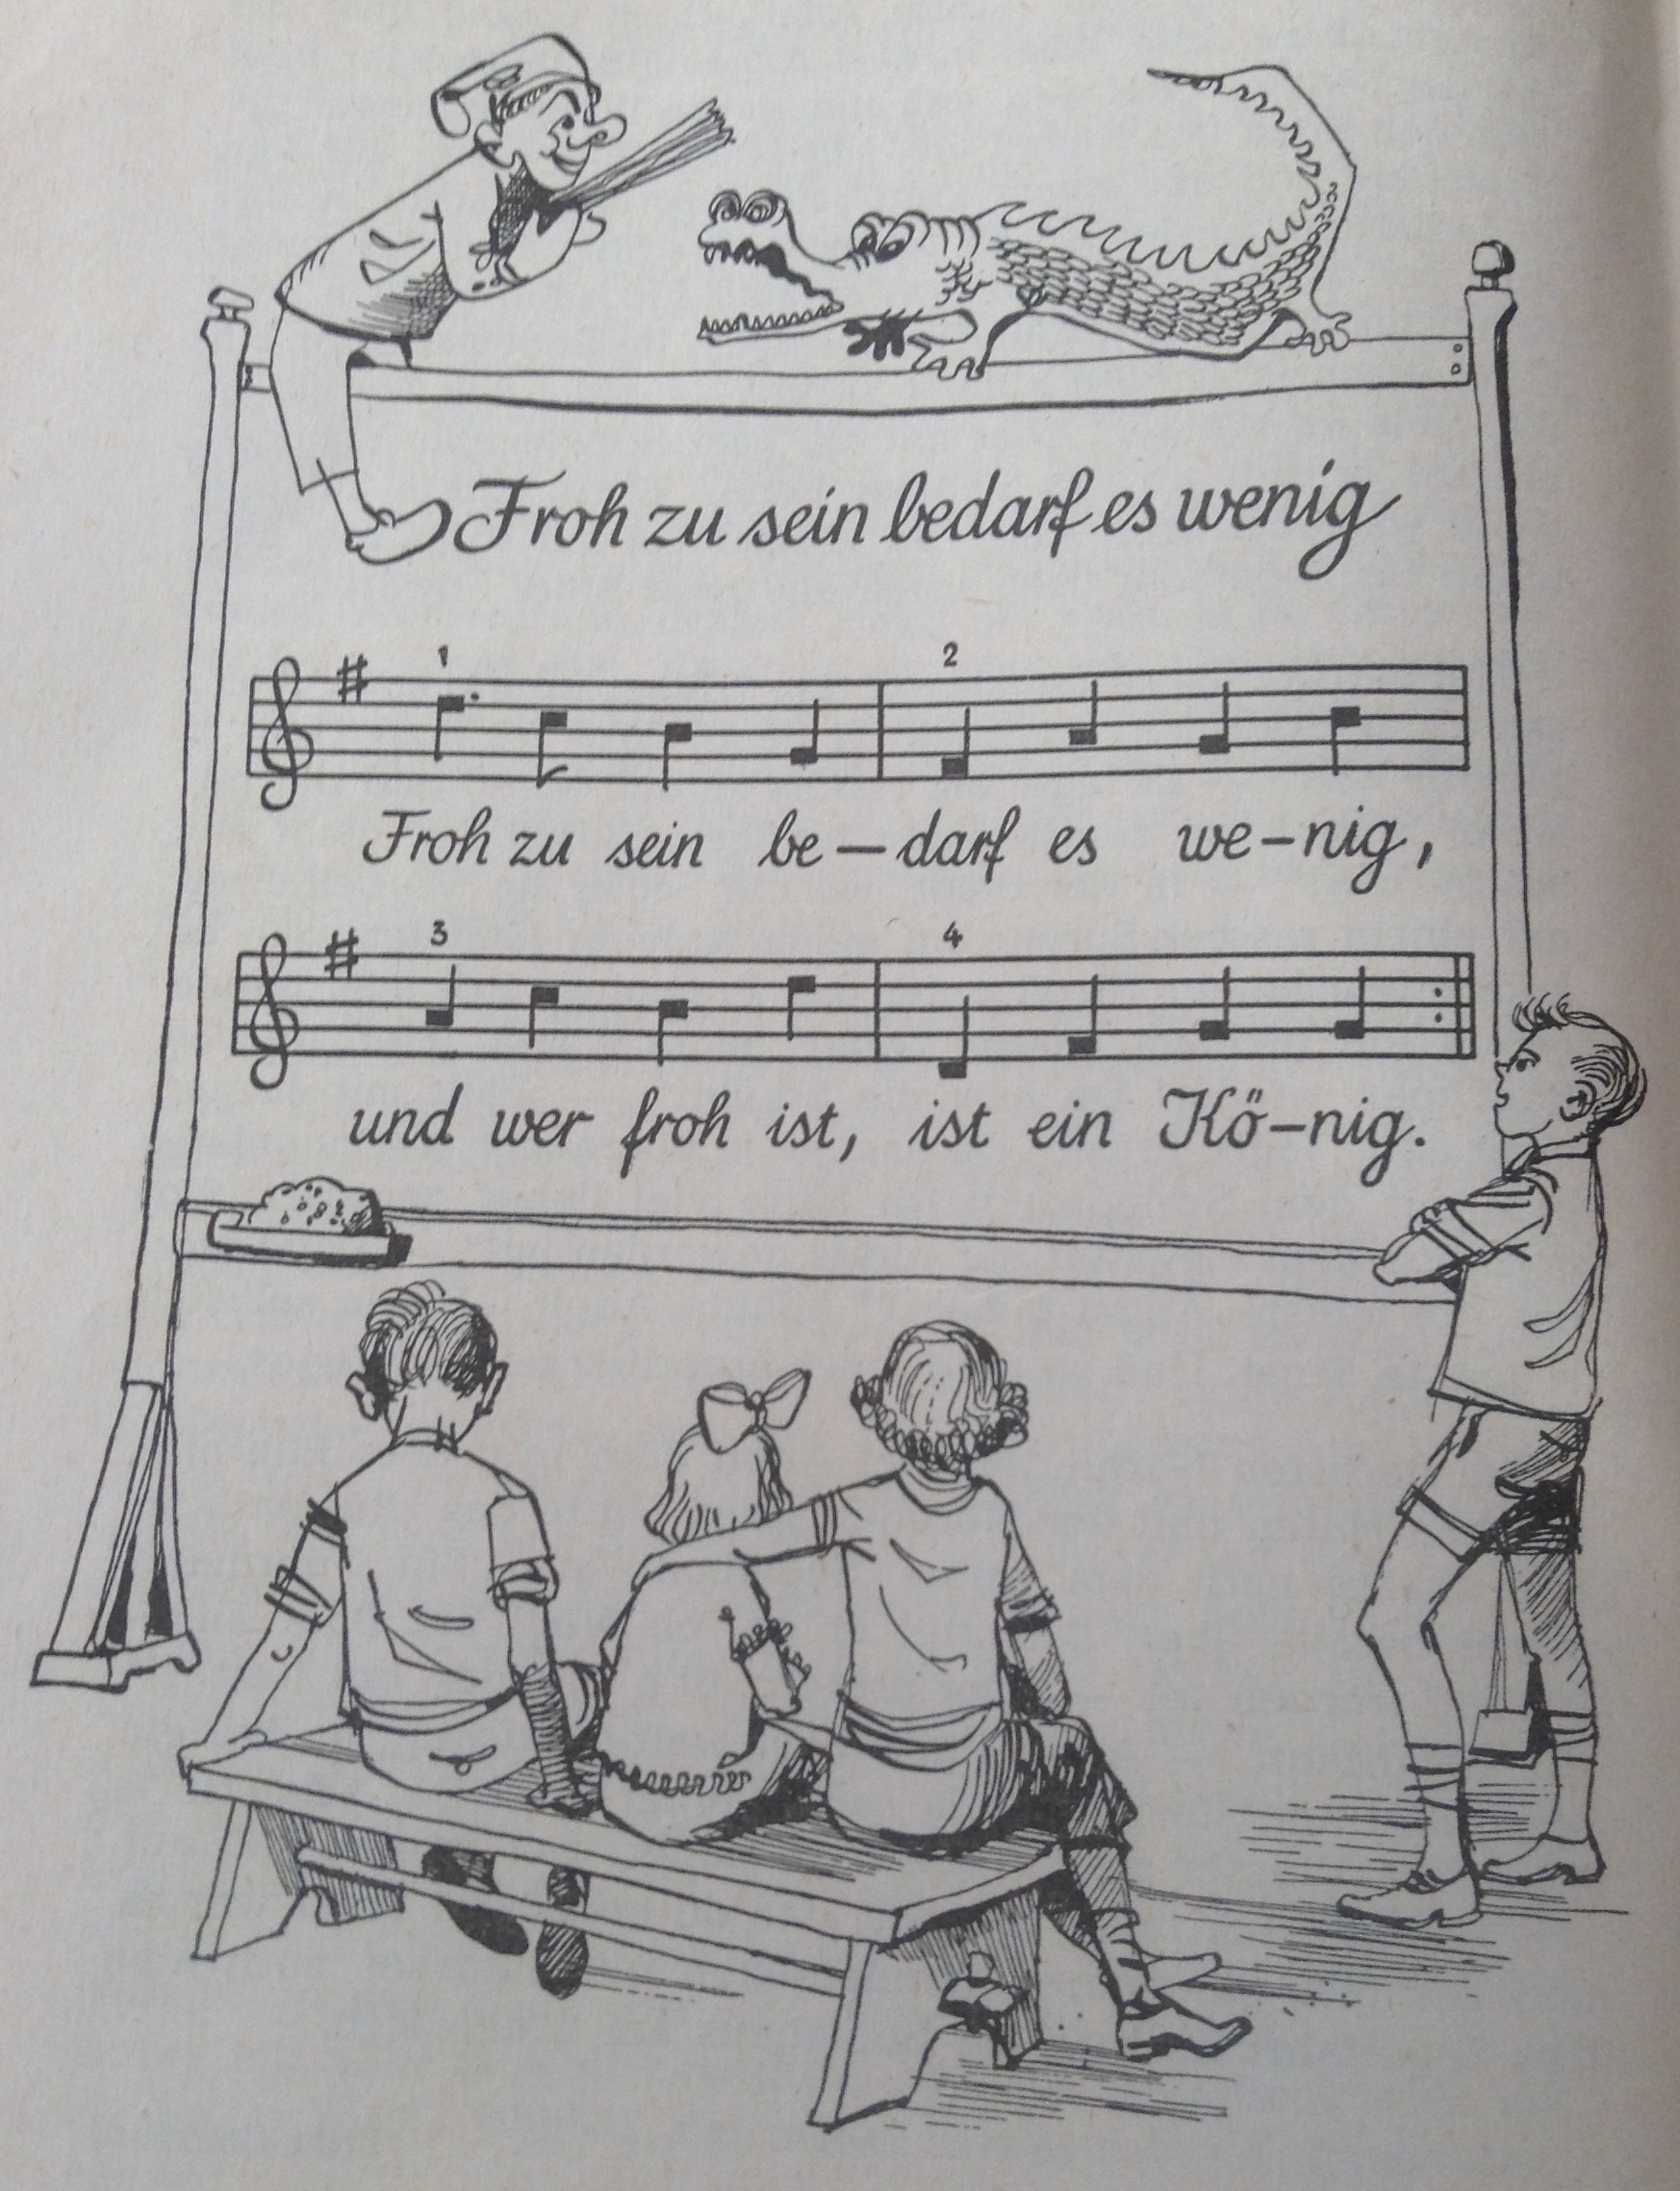 Froh zu sein bedarf es wenig
1 2
Froh zu sein be–darf es we–nig,
3 4
und wer froh ist, ist ein Kö–nig.